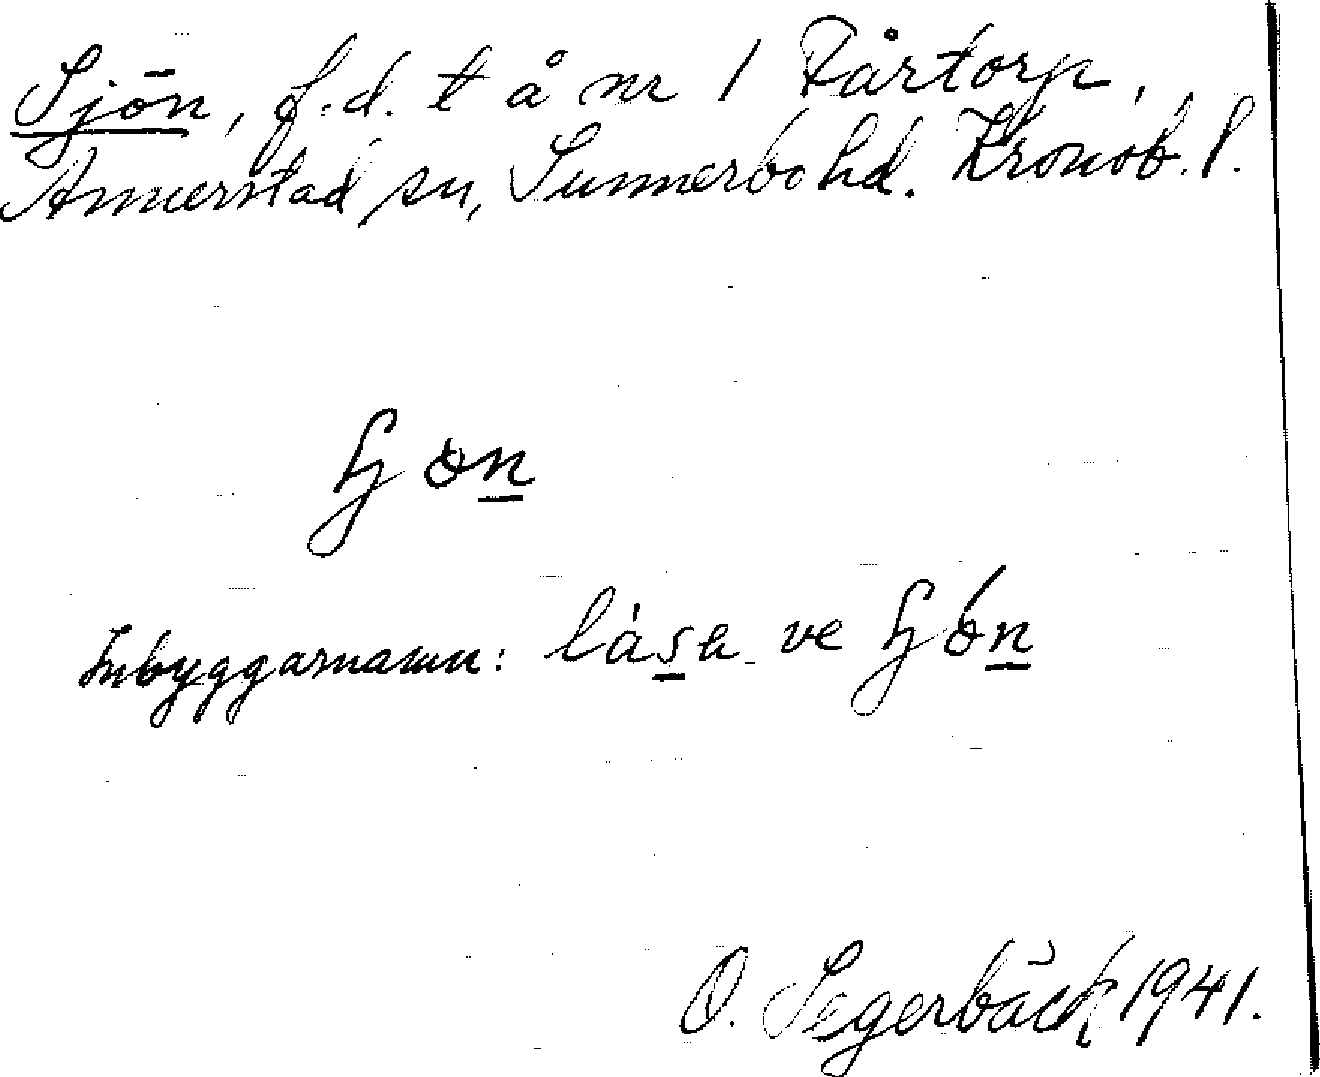 Sjön, f.d. t å nr 1 Fårtorp,
Annerstad sn, Sunnerbo hd. Kronob. l.
ɧøn
Inbyggarnamn: lása ve ɧǿn
O. Segerbäck 1941.